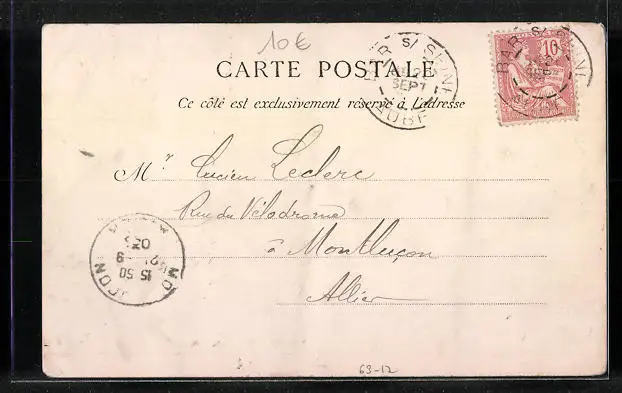 10€
CARTE POSTALE
Ce côté est exclusivement réservé à l'adresse
BAR S/ SEINE
SEPT
AUBE
BAR S/ SEINE
10
Mr Lucien Leclerc
Rue du Vélodrome
à Montluçon
Allier
15 50
63-12